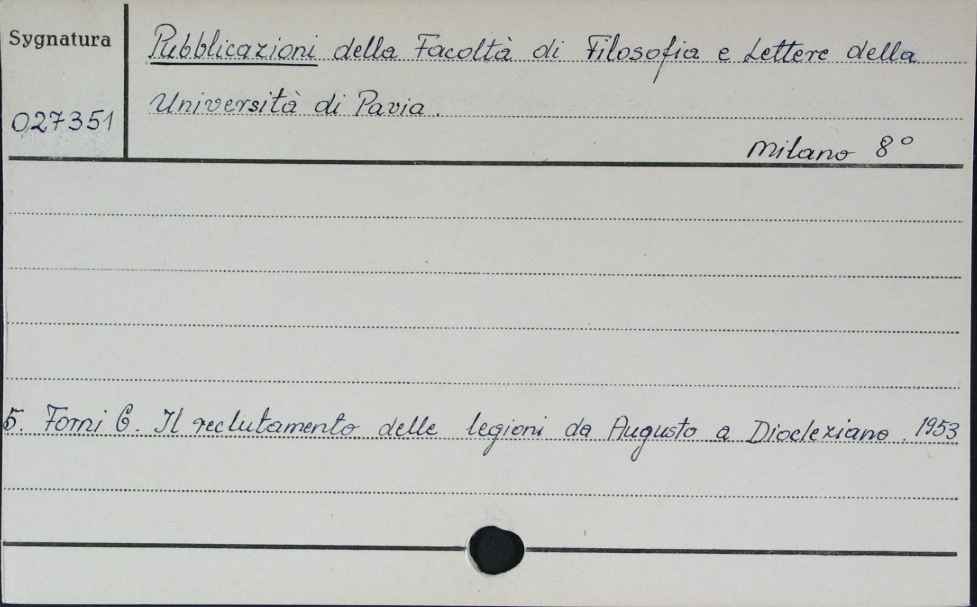 Sygnatura
027351
Pubblicazioni della Facoltà di Filosofia e Lettere della
Università di Pavia.
Milano 8°
5. Forni G. Il reclutamento delle legioni da Augusto a Diocleziano. 1953